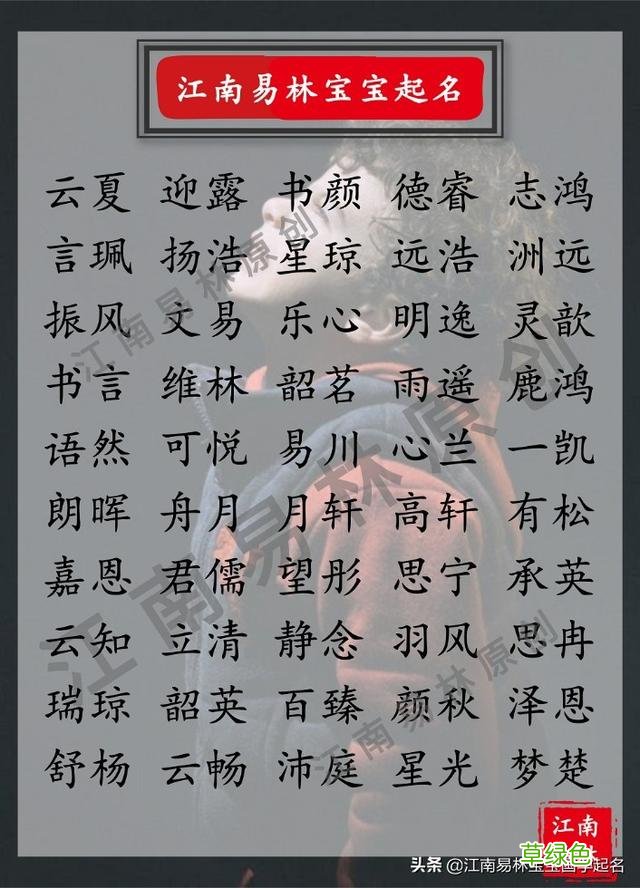 江南易林宝宝起名
云夏 迎露 书颜 德睿 志鸿
言珮 扬浩 星琼 远浩 洲远
振风 文易 乐心 明逸 灵歆
书言 维林 韶茗 雨遥 鹿鸿
语然 可悦 易川 心兰 一凯
朗晖 舟月 月轩 高轩 有松
嘉恩 君儒 望彤 思宁 承英
云知 立清 静念 羽风 思冉
瑞琼 韶英 百臻 颜秋 泽恩
舒杨 云畅 沛庭 星光 梦楚
江南易林原创
江南易林原创
江南易林原创
江南
草绿色
头条 @江南易林宝宝国学起名